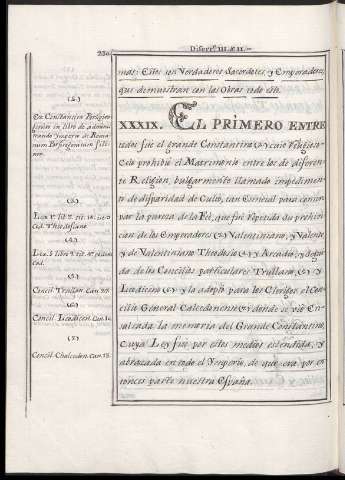 230
Discurso III. § II.
mas: Estos son Verdaderos Sacerdotes, y Emperadores,
que demuestran con las Obras todo esto.
XXXIX. EL PRIMERO ENTRE
todos fue el grande Constantino, cuio Religioso
Celo prohibió el Matrimonio entre los de diferen-
te Religion, vulgarmente llamado impedimen-
to de disparidad de Culto, tan esencial para conser-
var la pureza de la Fé, que fue repetida su prohivi-
cion de los Emperadores Valentiniano, y Valente,
y de Valentiniano Theodosio y Arcadio, y despues
da de los Concilios particulares Trullano, y
Laodiceno y la adoptó para los Clerigos el Con-
cilio General Calcedonense donde se vió En-
salzada la memoria del Grande Constantino,
Cuya Ley fue por estos medios estendida, y
abrazada en todo el Ymperio, de que era por en-
tonces parte nuestra España.
Ex Constantino Porfiro-
genito in libro de admini-
strando Imperio ad Roma-
num
Lex
Cod. Theodosiano
Lex
Cod.
Concil. Trullan. Can.
Concil. Laodicen. Can.
Concil. Chalceden. Can.